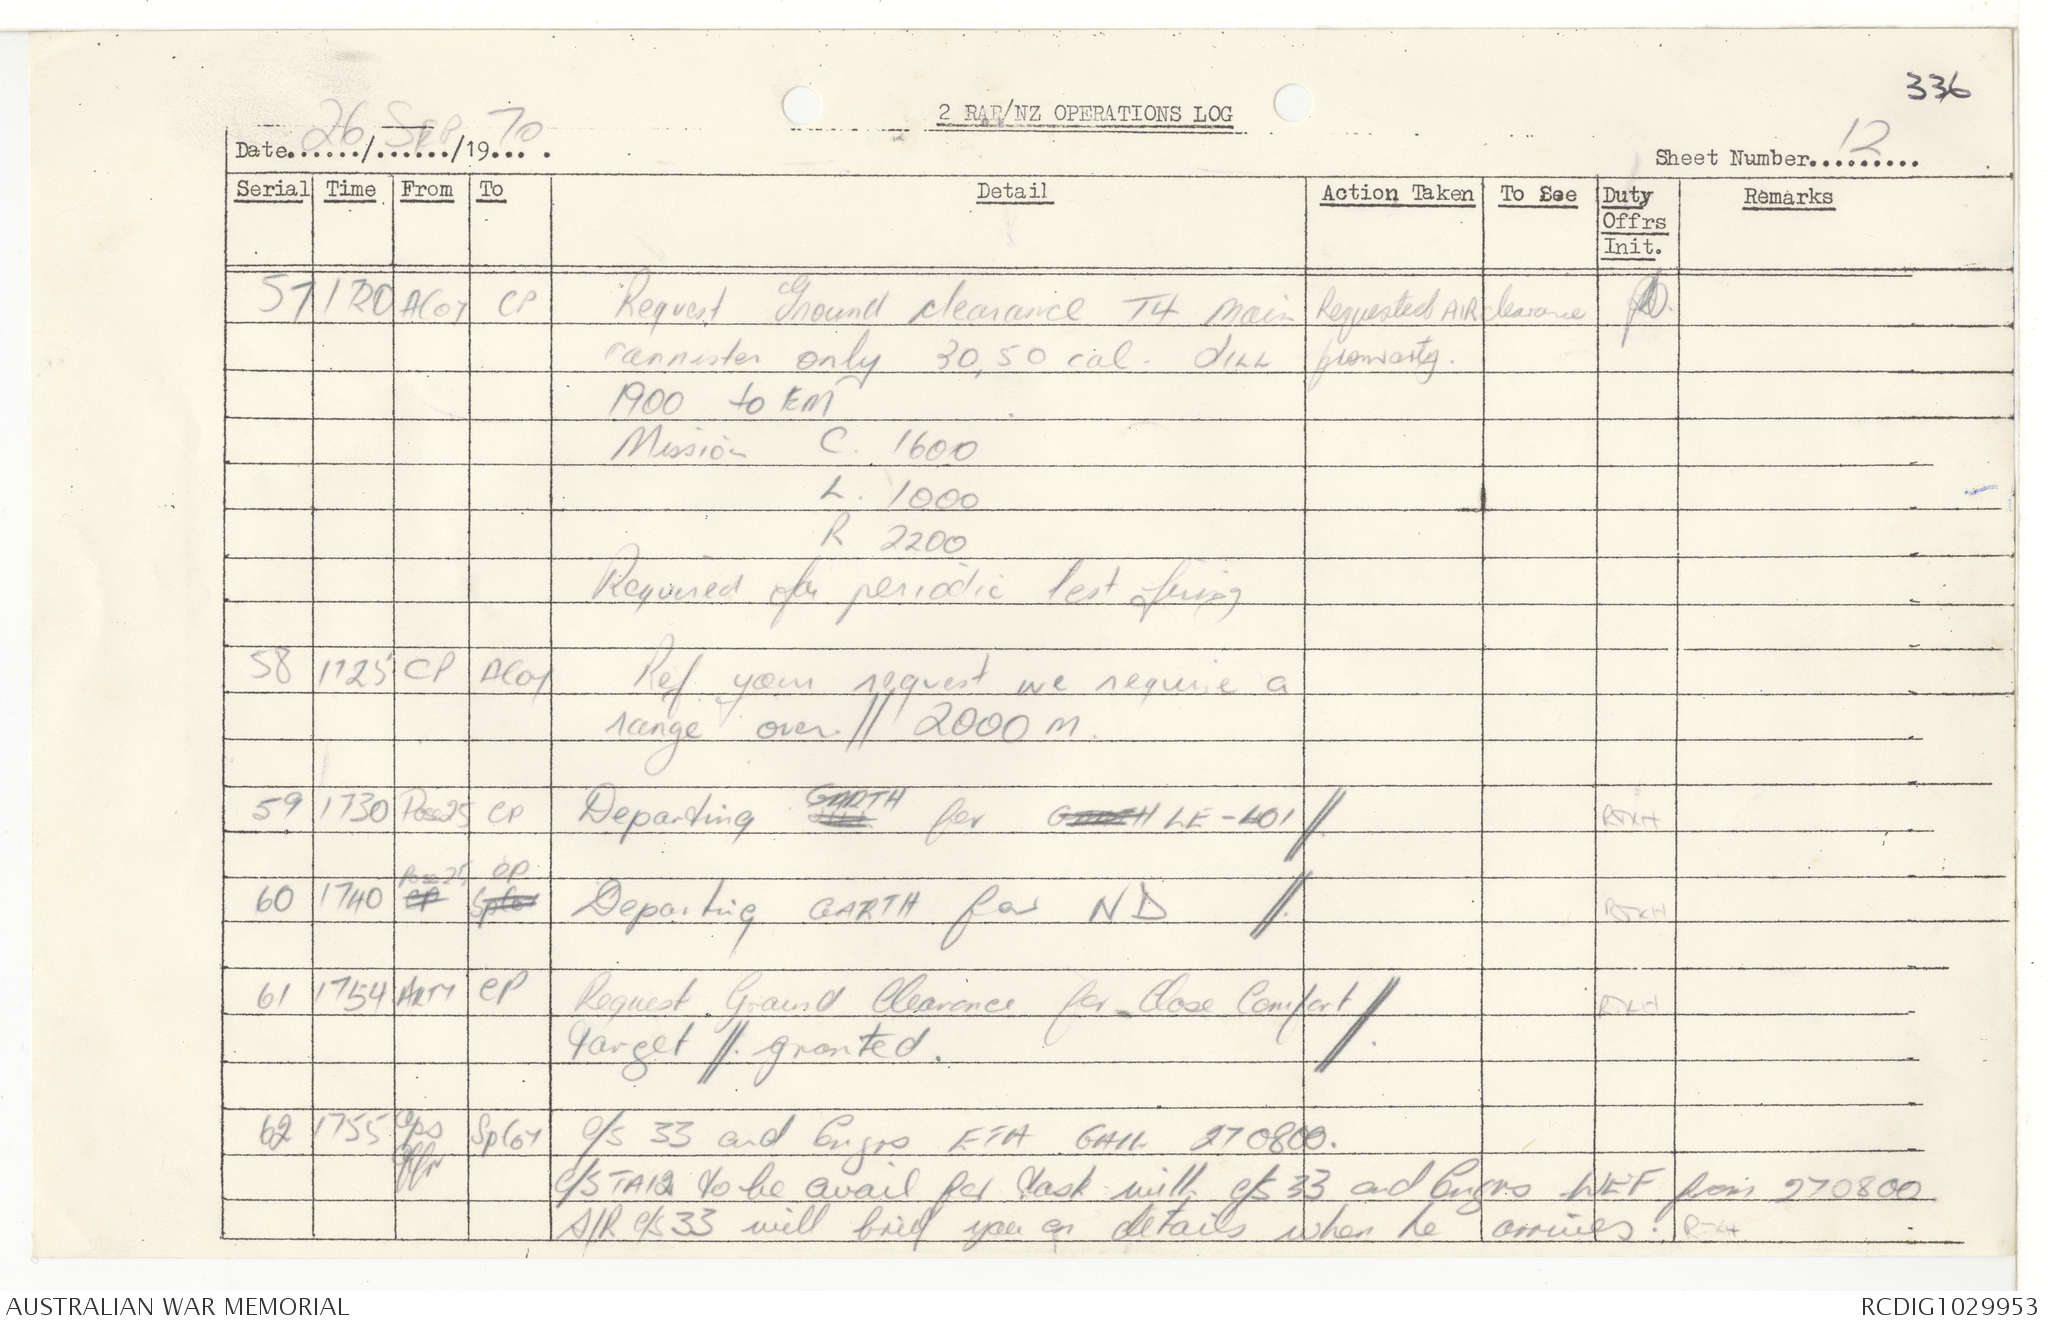 336
2 RAR/NZ OPERATIONS LOG
Date 26/SEP/1970
Sheet Number 12
Serial Time From To Detail Action Taken To See Duty Offrs Init. Remarks
57 1720 ACoy CP Request Ground clearance T4 Main Requested AIR clearance
cannister only 30,50 cal.
1900 to EM
Mission C. 1600
L. 1000
R 2200
Required for periodic test firing
58 1725 CP ACoy Ref. your request we require a
range over // 2000 M.
59 1730 CP Departing GARTH for LE-401 // RJKH
60 1740 CP Departing GARTH for ND // RJKH
61 1754 ARTY CP Request Ground Clearance for Close Comfort // RJKH
Target // granted.
62 1755 Ops Offr SpCoy C/S 33 and Engrs ETA GAIL 270800.
C/S TA12 to be avail for task with C/S 33 and Engrs WEF from 270800
C/S 33 will brief you on details when he arrives.
AUSTRALIAN WAR MEMORIAL
RCDIG1029953